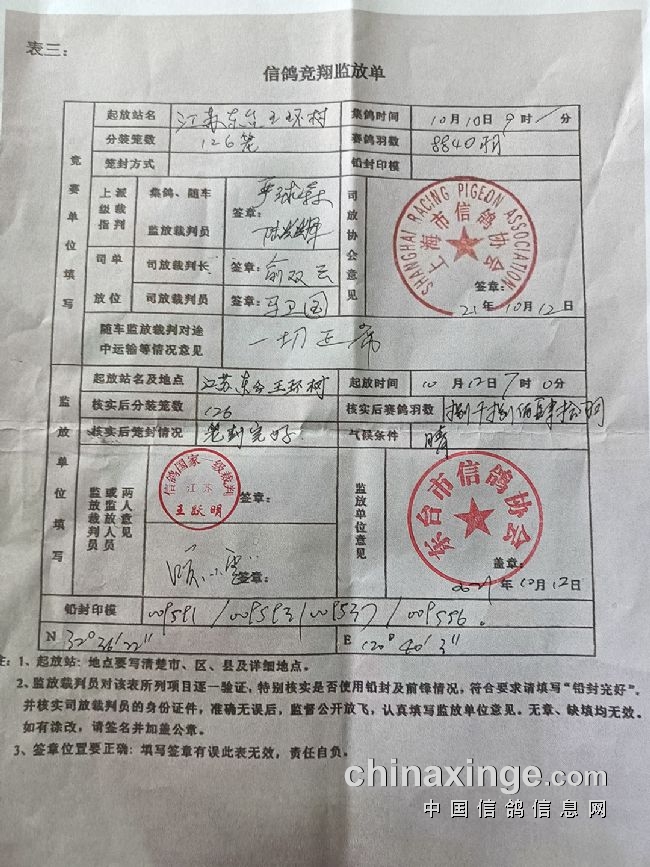 表三：
信鸽竞翔监放单
竞要单位填写
起放站名 江苏东台王环村 集鸽时间 10月10日9时/分
分装笼数 126笼 赛鸽羽数 8840羽
笼封方式 铅封印模
上级指派裁判 集鸽、随车监放裁判员 签章：
司放协会意见
SHANGHAI RACING PIGEON ASSOCIATION
上海市信鸽协会
签章：
21年10月12日
司放单位 司放裁判长 签章：俞双云
司放裁判员 签章：马卫国
随车监放裁判对途中运输等情况意见 一切正常
监放单位填写
起放站名及地点 江苏东台王环村 起放时间 10月12日7时0分
核实后分装笼数 126 核实后赛鸽羽数 捌仟捌佰肆拾羽
核实后笼封情况 笼封完好 气候条件 晴
监放裁判员或监放人员两人意见
信鸽国家一级裁判
江苏
王跃明
签章：
签章：
监放单位意见
东台市信鸽协会
盖章：
2021年10月12日
铅封印模 009591/009593/009537/009556.
N 32°36′22″ E 120°40′3″
注：1、起放站：地点要写清楚市、区、县及详细地点。
2、监放裁判员对该表所列项目逐一验证，特别核实是否使用铅封及前锋情况，符合要求请填写“铅封完好”。
并核实司放裁判员的身份证件，准确无误后，监督公开放飞，认真填写监放单位意见。无章、缺填均无效。
如有涂改，请签名并加盖公章。
3、签章位置要正确：填写签章有误此表无效，责任自负。
chinaxinge.com
中国信鸽信息网